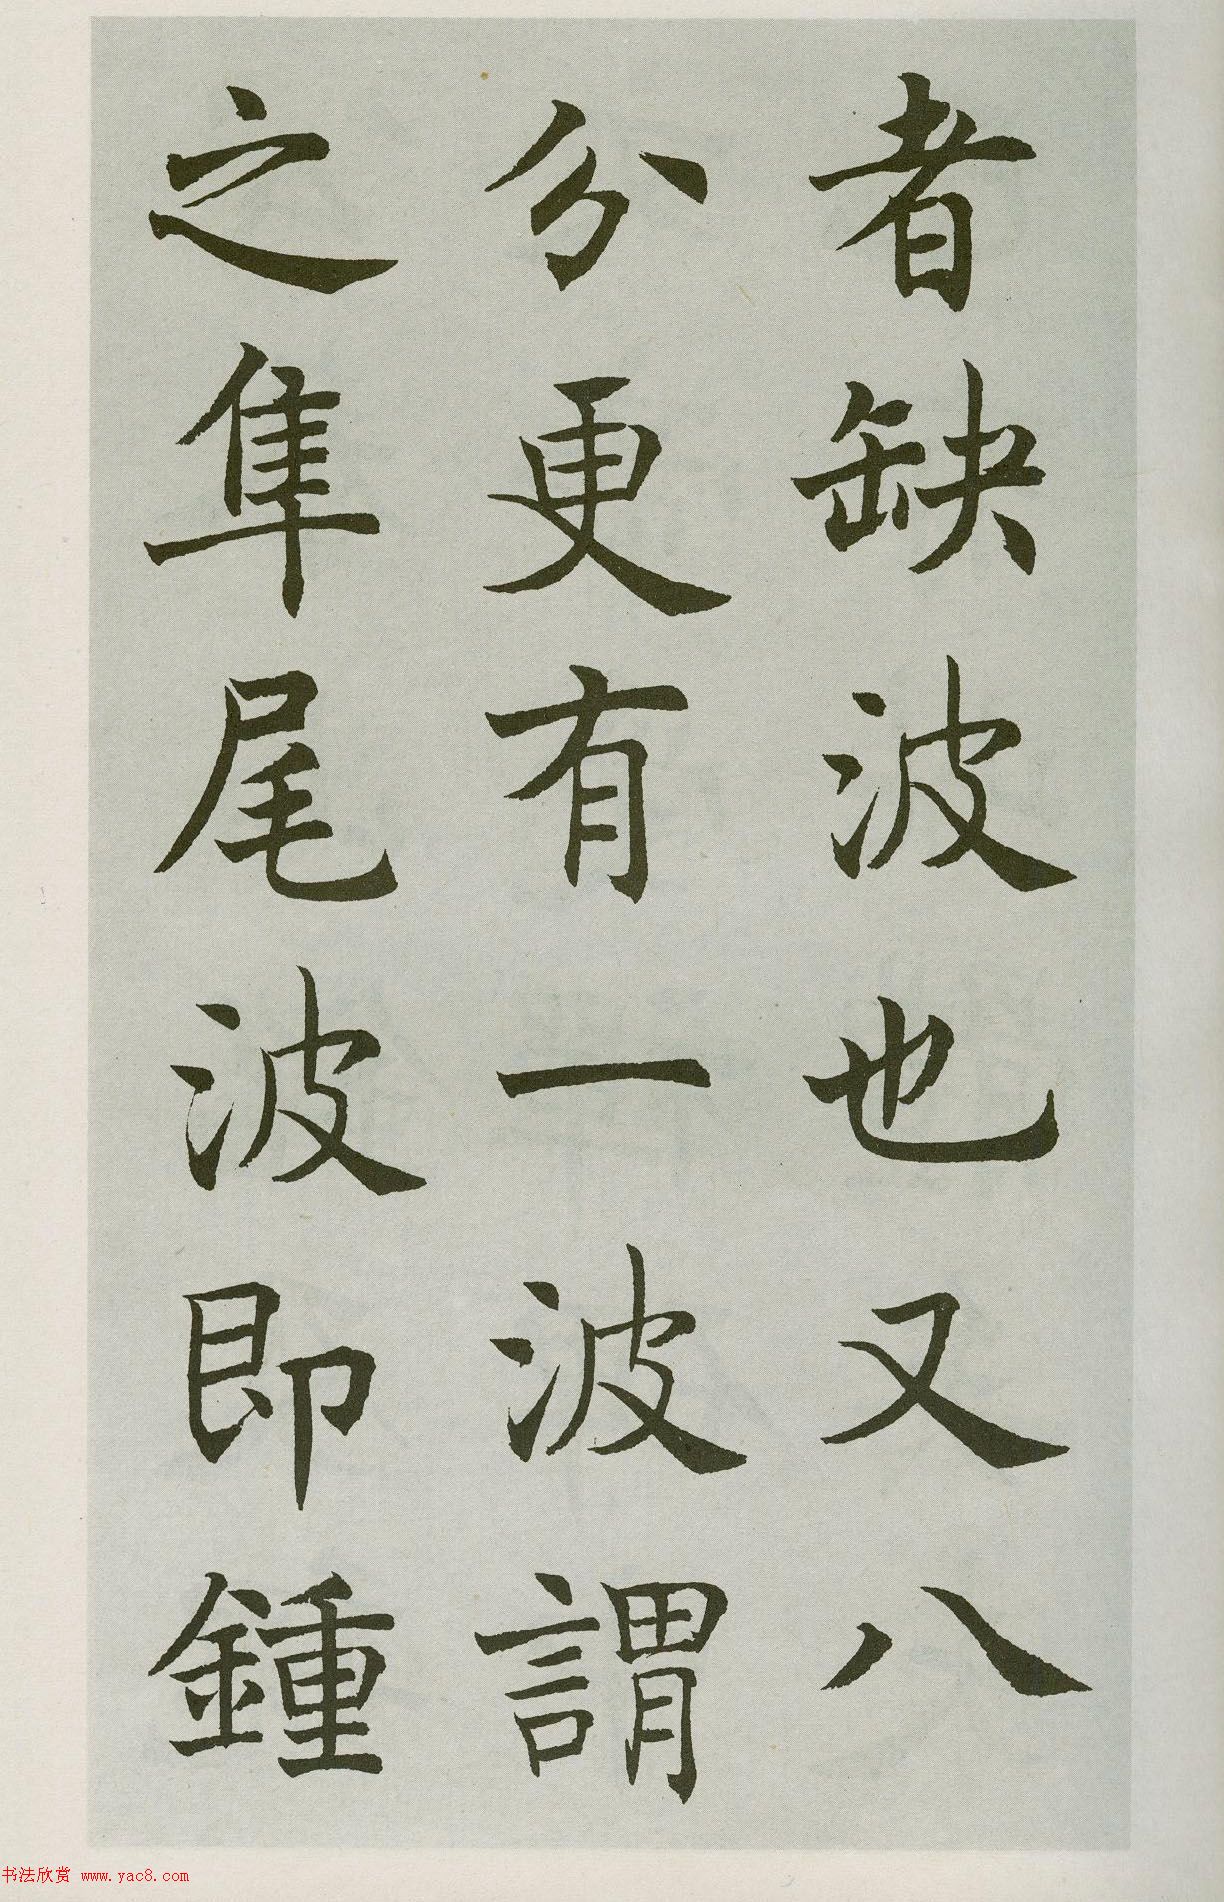 者缺波也又八
分更有一波謂
之隼尾波即鍾
书法欣赏 www.yac8.com